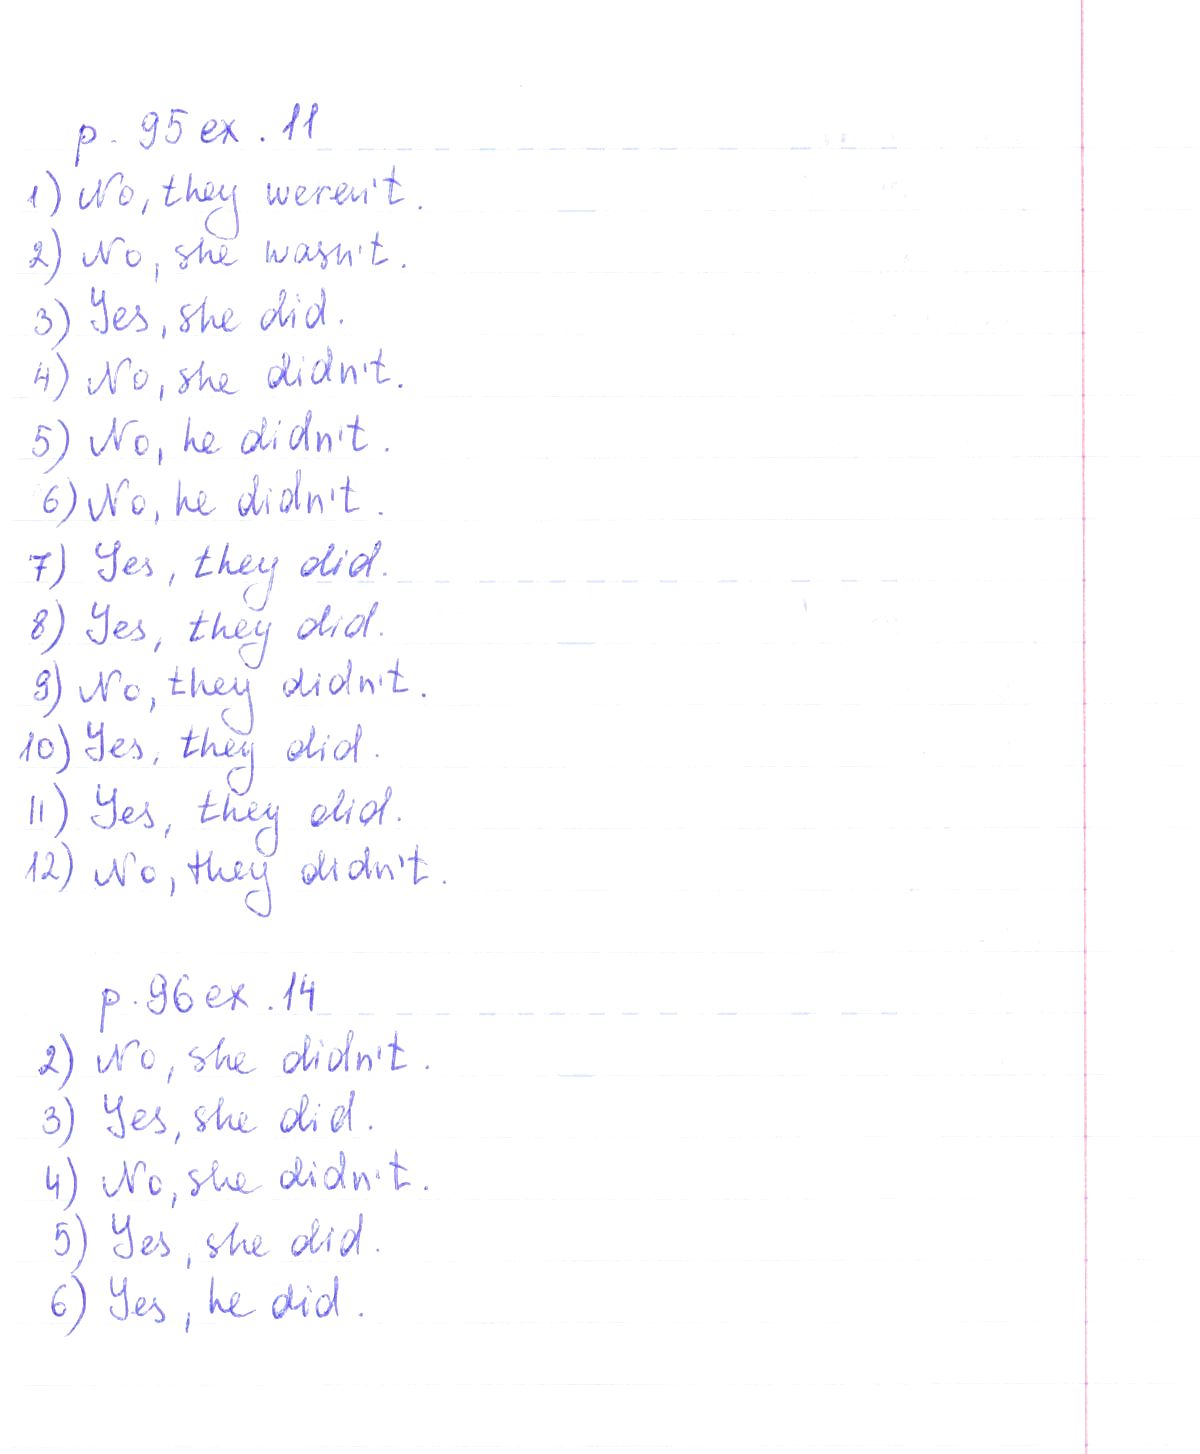 p. 95 ex. 11
1) No, they weren't.
2) No, she wasn't.
3) Yes, she did.
4) No, she didn't.
5) No, he didn't.
6) No, he didn't.
7) Yes, they did.
8) Yes, they did.
9) No, they didn't.
10) Yes, they did.
11) Yes, they did.
12) No, they didn't.
p. 96 ex. 14
2) No, she didn't.
3) Yes, she did.
4) No, she didn't.
5) Yes, she did.
6) Yes, he did.